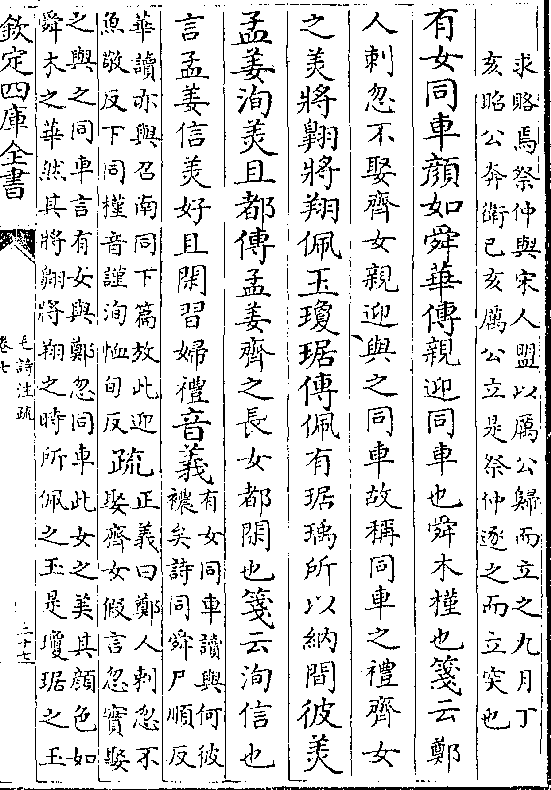 求賂焉祭仲與宋人盟以厲公歸而立之九月丁
亥昭公奔衛已亥厲公立是祭仲逐之而立突也
有女同車顔如舜華傳親迎同車也舜木槿也箋云鄭
人刺忽不娶齊女親迎與之同車故稱同車之禮齊女
之美將翺將翔佩玉瓊琚傳佩有琚瑀所以納間彼美
孟姜洵美且都傳孟姜齊之長女都閑也箋云洵信也
言孟姜信美好且閑習婦禮音義
有女同車讀與何彼
襛矣詩同舜尸順反
華讀亦與召南同下篇放此迎
魚敬反下同槿音謹洵恤旬反
疏
正義曰鄭人刺忽不
娶齊女假言忽實娶
之與之同車言有女與鄭忽同車此女之美其顔色如
舜木之華然其將翺將翔之時所佩之玉是瓊琚之玉
欽定四庫全書
毛詩注疏
卷七